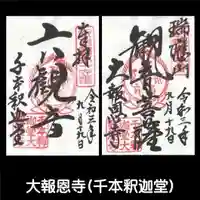 奉拝
六観音
千本釈迦堂
令和三年
九月十九日
瑞應山
観音菩薩
大報恩寺
令和三年
九月十九日
大報恩寺(千本釈迦堂)